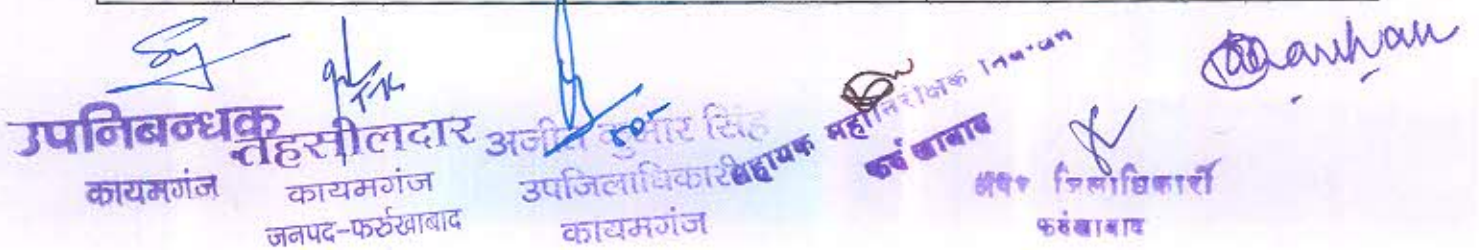 उपनिबन्धक
कायमगंज
तहसीलदार
कायमगंज
जनपद-फर्रुखाबाद
कुमार सिंह
उपजिलाधिकारी
कायमगंज
सहायक महानिरीक्षक निबन्धन
फर्रुखाबाद
अपर जिलाधिकारी
फर्रुखाबाद